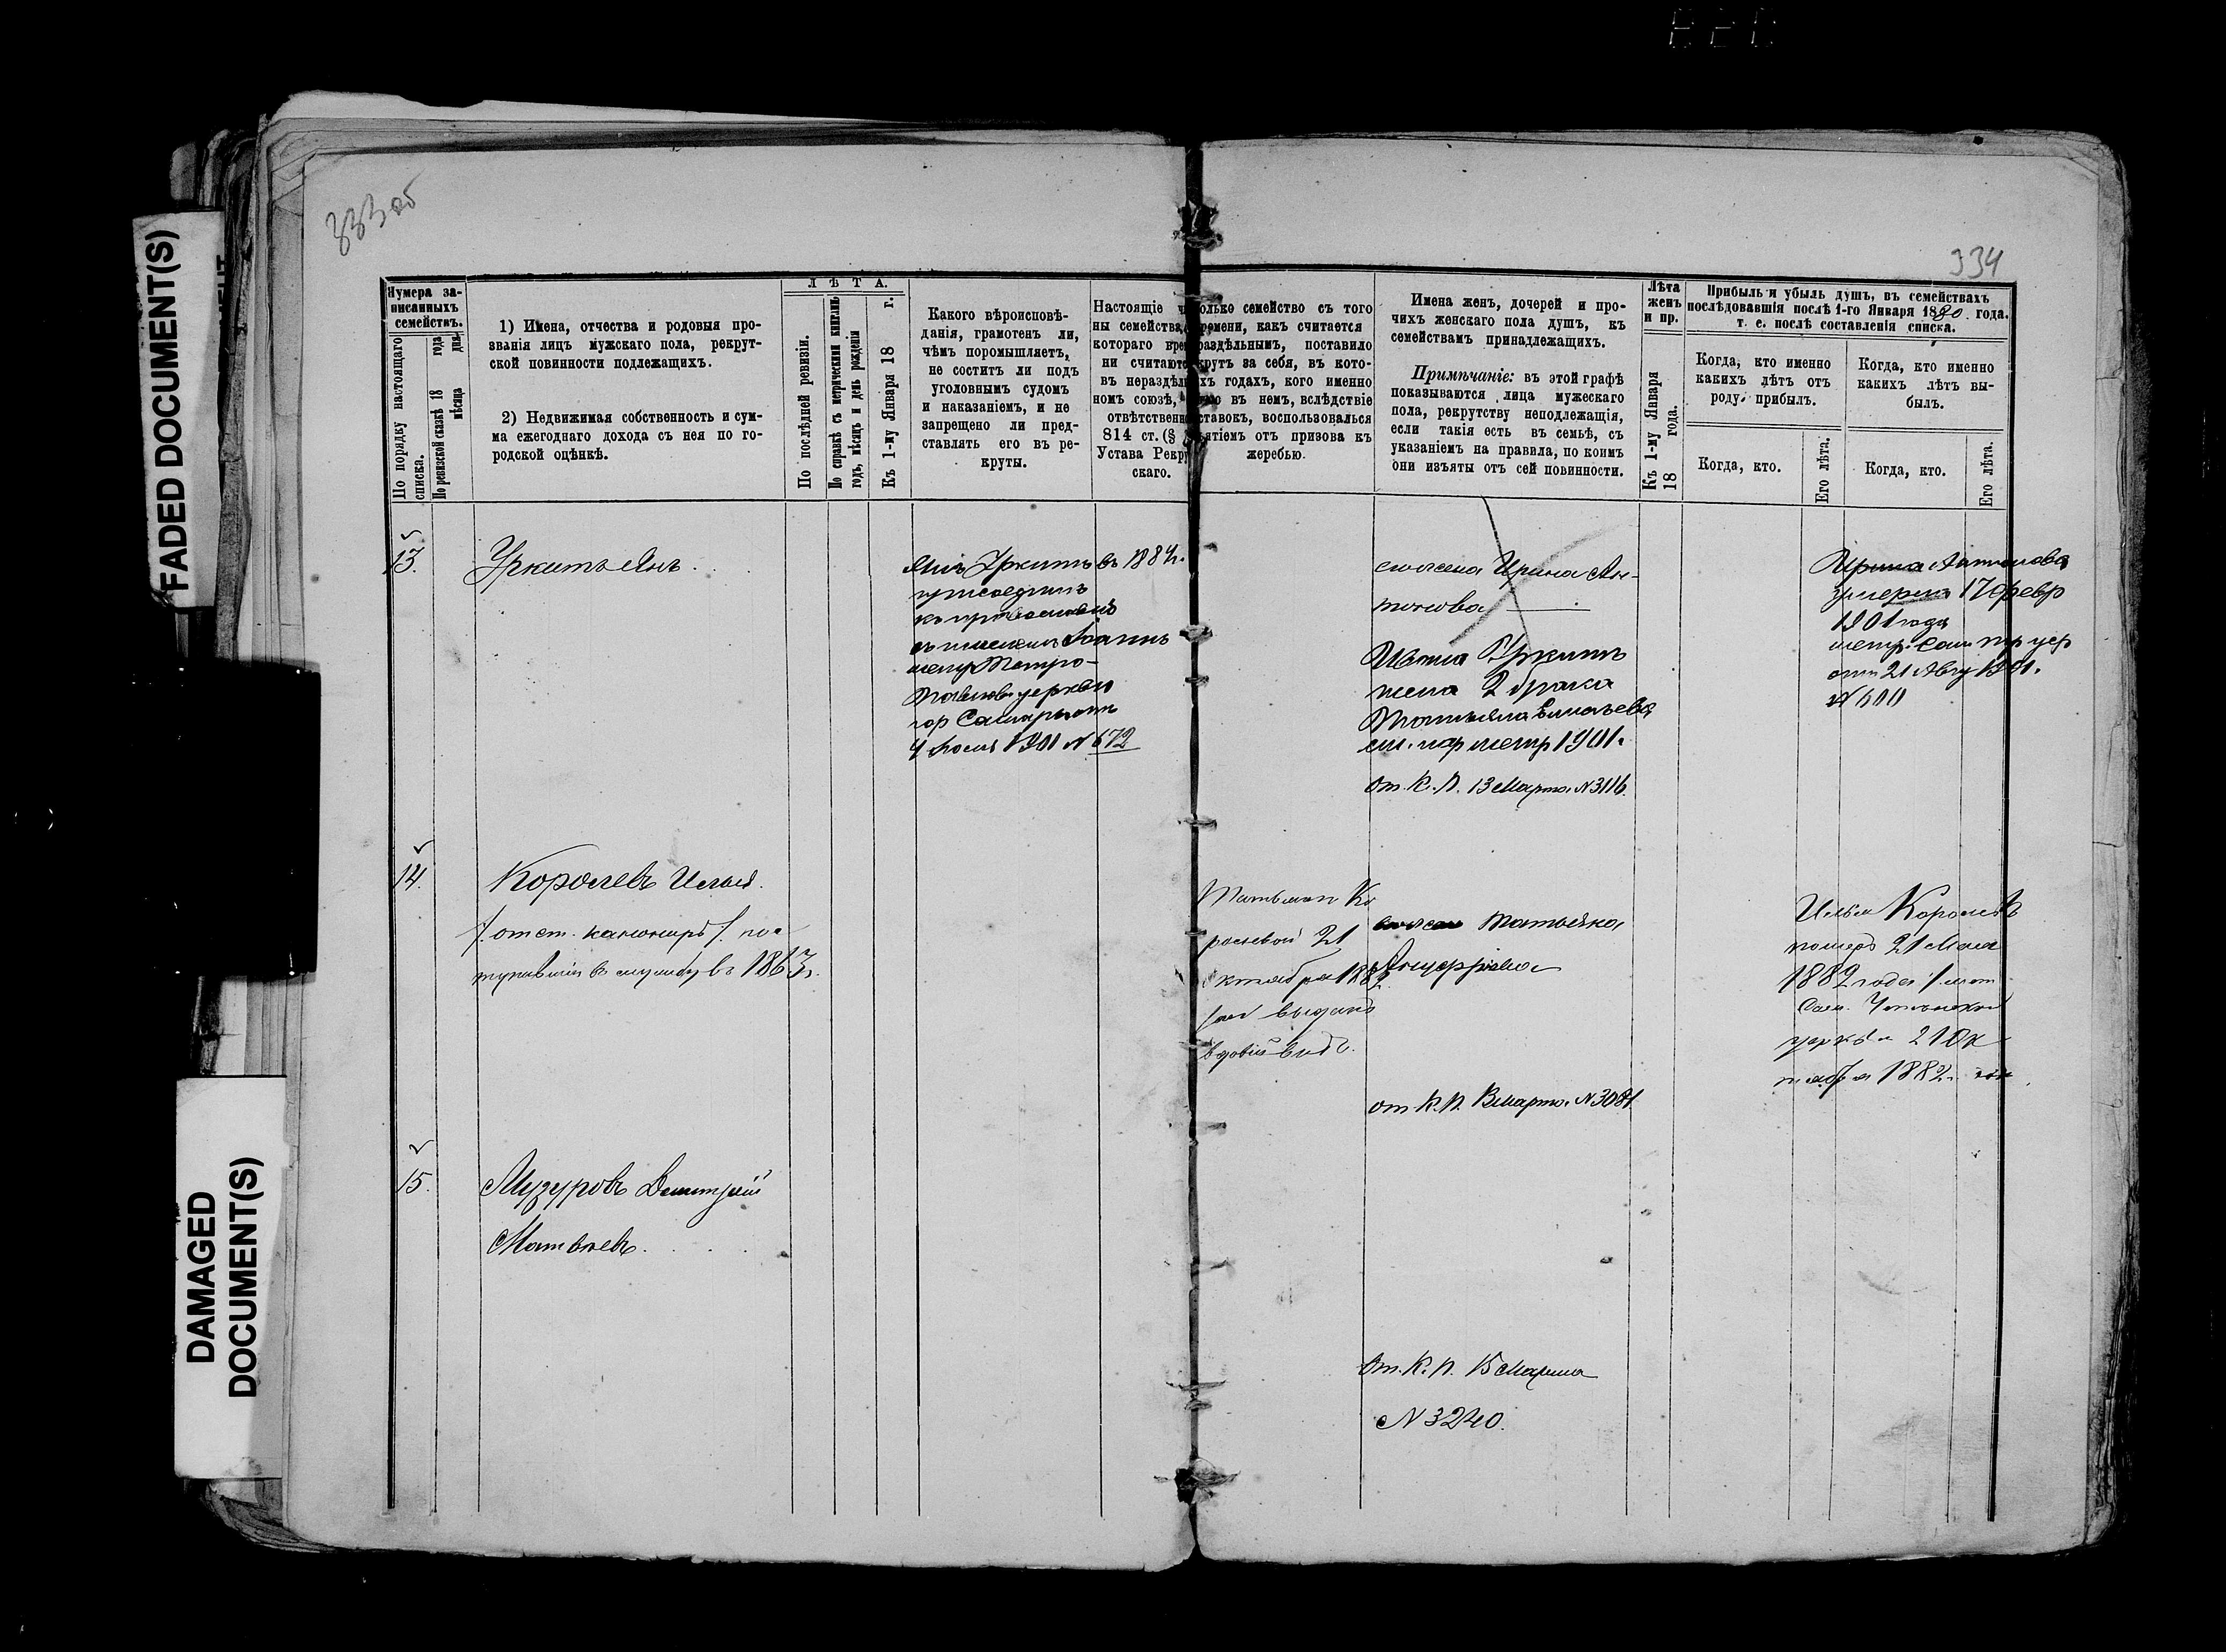 333 об
334
FADED DOCUMENT(S)
DAMAGED
DOCUMENT(S)
Нумера за-
писанныхъ
семействъ.
По порядку настоящаго
списка.
По ревизской сказкѣ 18 года
мѣсяца дня
1) Имена, отчества и родовыя про-
званія лицъ мужскаго пола, рекрут-
ской повинности подлежащихъ.
2) Недвижимая собственность и сум-
ма ежегоднаго дохода съ нея по го-
родской оцѣнкѣ.
ЛѢТА.
По послѣдней ревизіи.
По справкѣ съ метрическими книгами
годъ, мѣсяцъ и день рожденія
Къ 1-му Января 18 г.
Какого вѣроисповѣ-
данія, грамотенъ ли,
чѣмъ поромышляетъ,
не соститъ ли подъ
уголовнымъ судомъ
и наказаніемъ, и не
запрещено ли пред-
ставлять его въ ре-
круты.
Настоящіе
ны семейства,
котораго
ни считаютс
въ нераздѣл
номъ союзѣ,
отвѣтственн
814 ст. (§
Устава Рекру
скаго.
олько семейство съ того
ремени, какъ считается
раздѣльнымъ, поставило
крутъ за себя, въ кото-
хъ годахъ, кого именно
въ немъ, вслѣдствіе
ставокъ, воспользовался
ятіемъ отъ призова къ
жеребью.
Имена женъ, дочерей и про-
чихъ женскаго пола душъ, къ
семействамъ принадлежащихъ.
Примѣчаніе: въ этой графѣ
показываются лица мужескаго
пола, рекрутству неподлежащія,
если такія есть въ семьѣ, съ
указаніемъ на правила, по коимъ
они изъяты отъ сей повинности.
Лѣта
женъ
и пр.
Къ 1-му Января
18 года.
Прибыль и убыль душъ, въ семействахъ
послѣдовавшія послѣ 1-го Января 1880 года.
т. е. послѣ составленія списка.
Когда, кто именно
какихъ лѣтъ отъ
роду. прибылъ.
Когда, кто именно
какихъ лѣтъ вы-
былъ.
Когда, кто.
Его лѣта.
Когда, кто.
Его лѣта.
13.
Уркитъ Янъ
Янъ Уркитъ въ 1884г.
присоединъ
къ православію
съ именемъ Іоаннъ
метр Петро-
Павлов церкви
гор Самары отъ
1901 N 672
его жена Ирина Ан-
тонова
Ивана Уркитъ
жена 2 брака
Татьяна
метр 1901г.
От. К. П. 13 Марта N 3116.
Ирина Антонова
умерла 17 февр
1901 года
метр. Сам
отъ 21 Авг 1901.
N 600
14.
Королевъ Илья.
/. отст. канониръ /. пос
тупившій въ службу въ 1863г.
Татьянѣ Ко
ролевой 21
ктября 1882
выданъ
вдовій видъ.
Татьяна
от К. П. Марта N 3081
Илья Королевъ
померъ 21 Мая
1882 года
Сам.
церкви 21 Ок
тября 1882г.
15.
Музуровъ Димитрій
Матвѣевъ.
От. К. П. 15 Марта
N 3240.